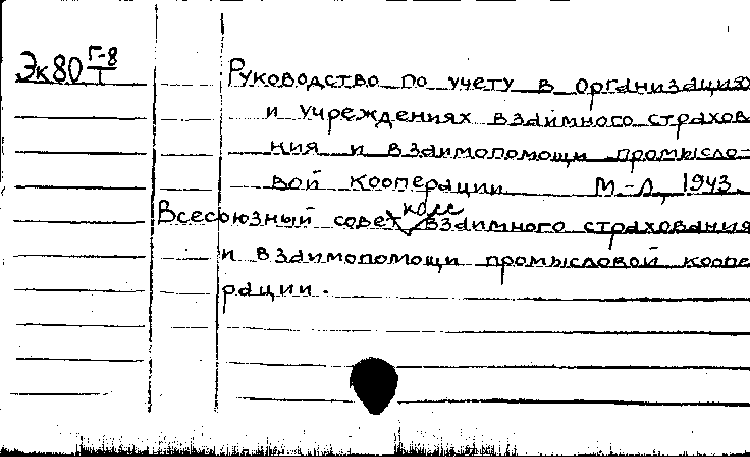 Эк80 Г-8/I
Руководство по учету в организация
и учреждениях взаимного страхов
ния и взаимопомощи промысло-
вой кооперации М.-Л., 1943.
касс
Всесоюзный совет взаимного страхования
и взаимопомощи промысловой коопе
рации.